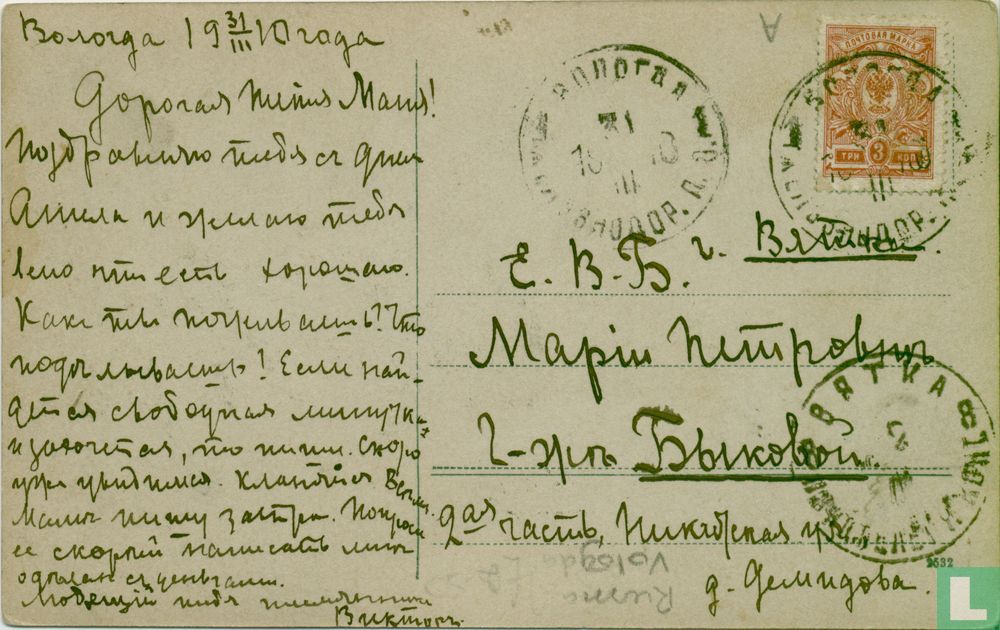 Вологда 19 31/III 10 года
Дорогая тетя Маня!
Поздравляю тебя съ днем
Ангела и желаю тебе
всего что есть хорошаго.
Какъ ты поживаешь? Что
поделываешь? Если най-
дется свободная минутка
и захочется, то пиши. Скоро
уже увидимся. Кланяйся Всем.
Маме пишу завтра. Попроси
ее скорей написать мне
с деньгами.
Любящий тебя племянник
Викторъ
ПОЧТОВАЯ МАРКА
ТРИ 3 КОП
ВОЛОГДА
31
10 10
III
ВОЛОГДА
31
10 10
III
г. Вятка.
Е. В-Б.
Маріи Петровнѣ
Г-жѣ Быковой
2ая часть, Никитская ул.
д. Демидова.
ВЯТКА
2532
Russia
Vologda
A
L